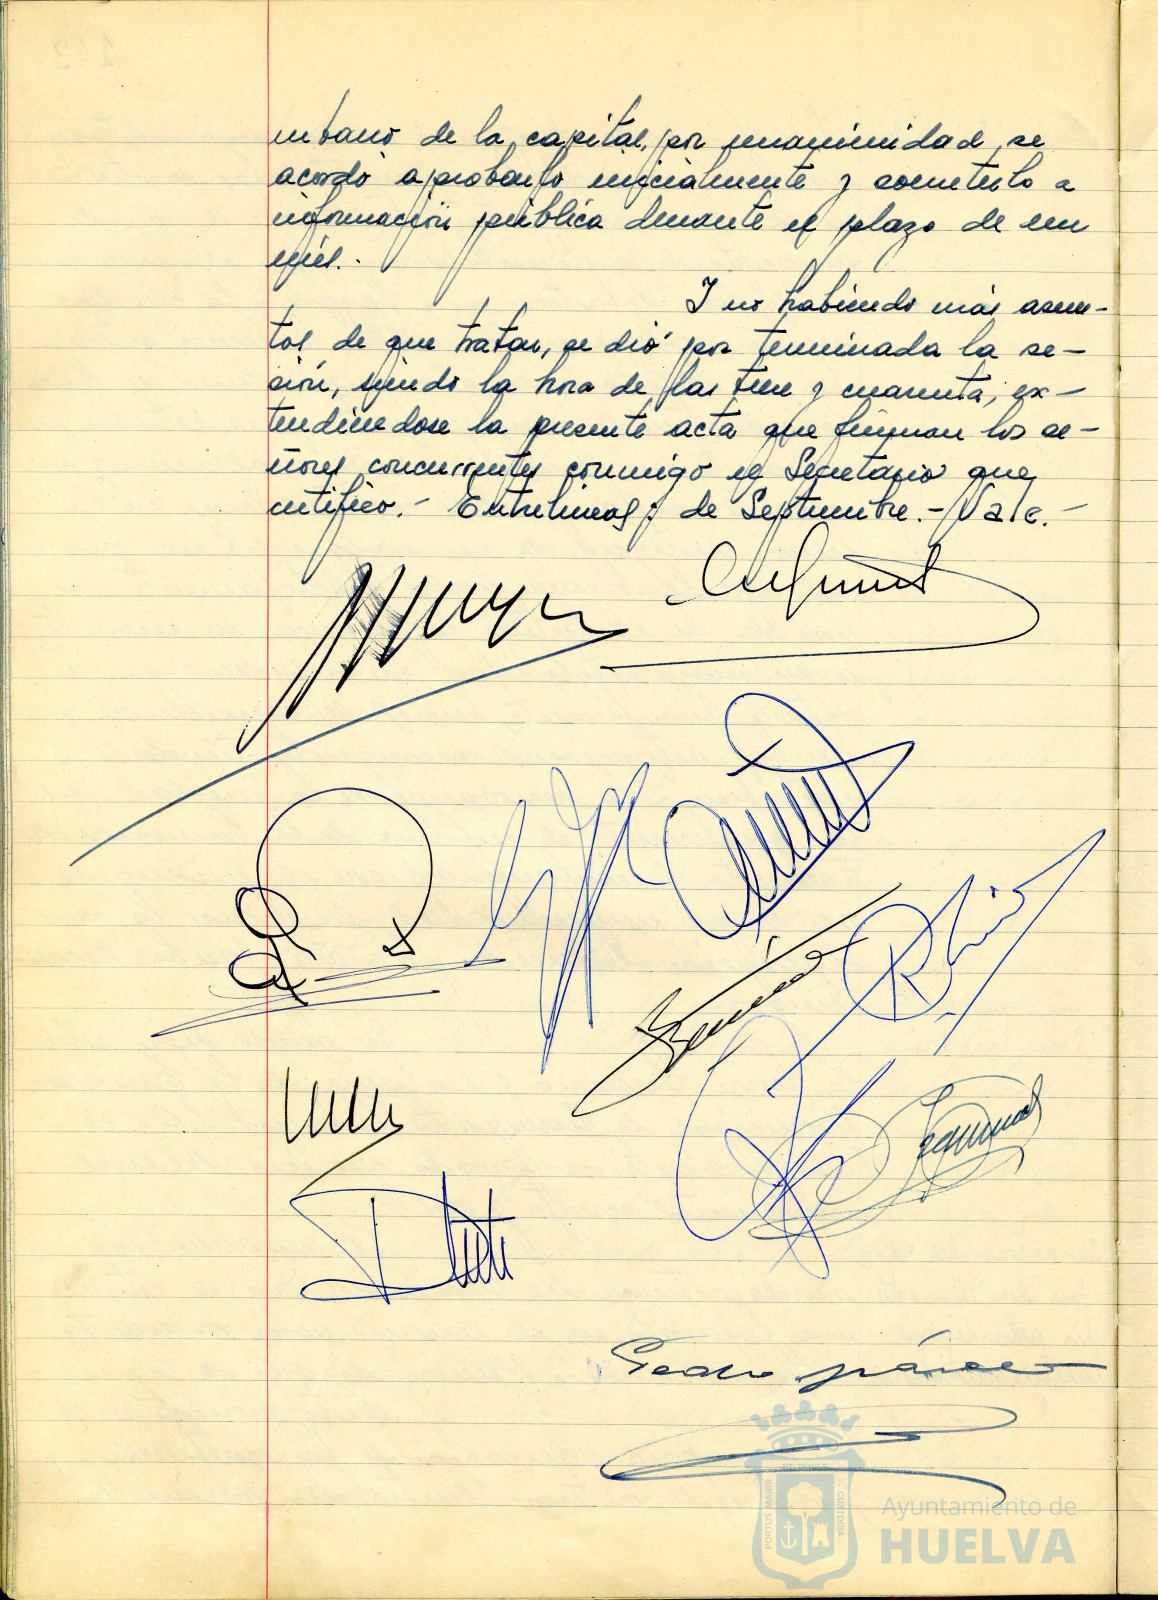 urbano de la capital, por unanimidad se
acordó aprobarlo inicialmente y someterlo a
información pública durante el plazo de un
mes.-
Y no habiendo más asun-
tos de que tratar, se dió por terminada la se-
sión, siendo la hora de las trece y cuarenta, ex-
tendiéndose la presente acta que firman los se-
ñores concurrentes conmigo el Secretario que
certifico.- Entrelíneas: de Septiembre.- Vale.-
Ayuntamiento de
HUELVA
PORTUS MARIS
CUSTODIA